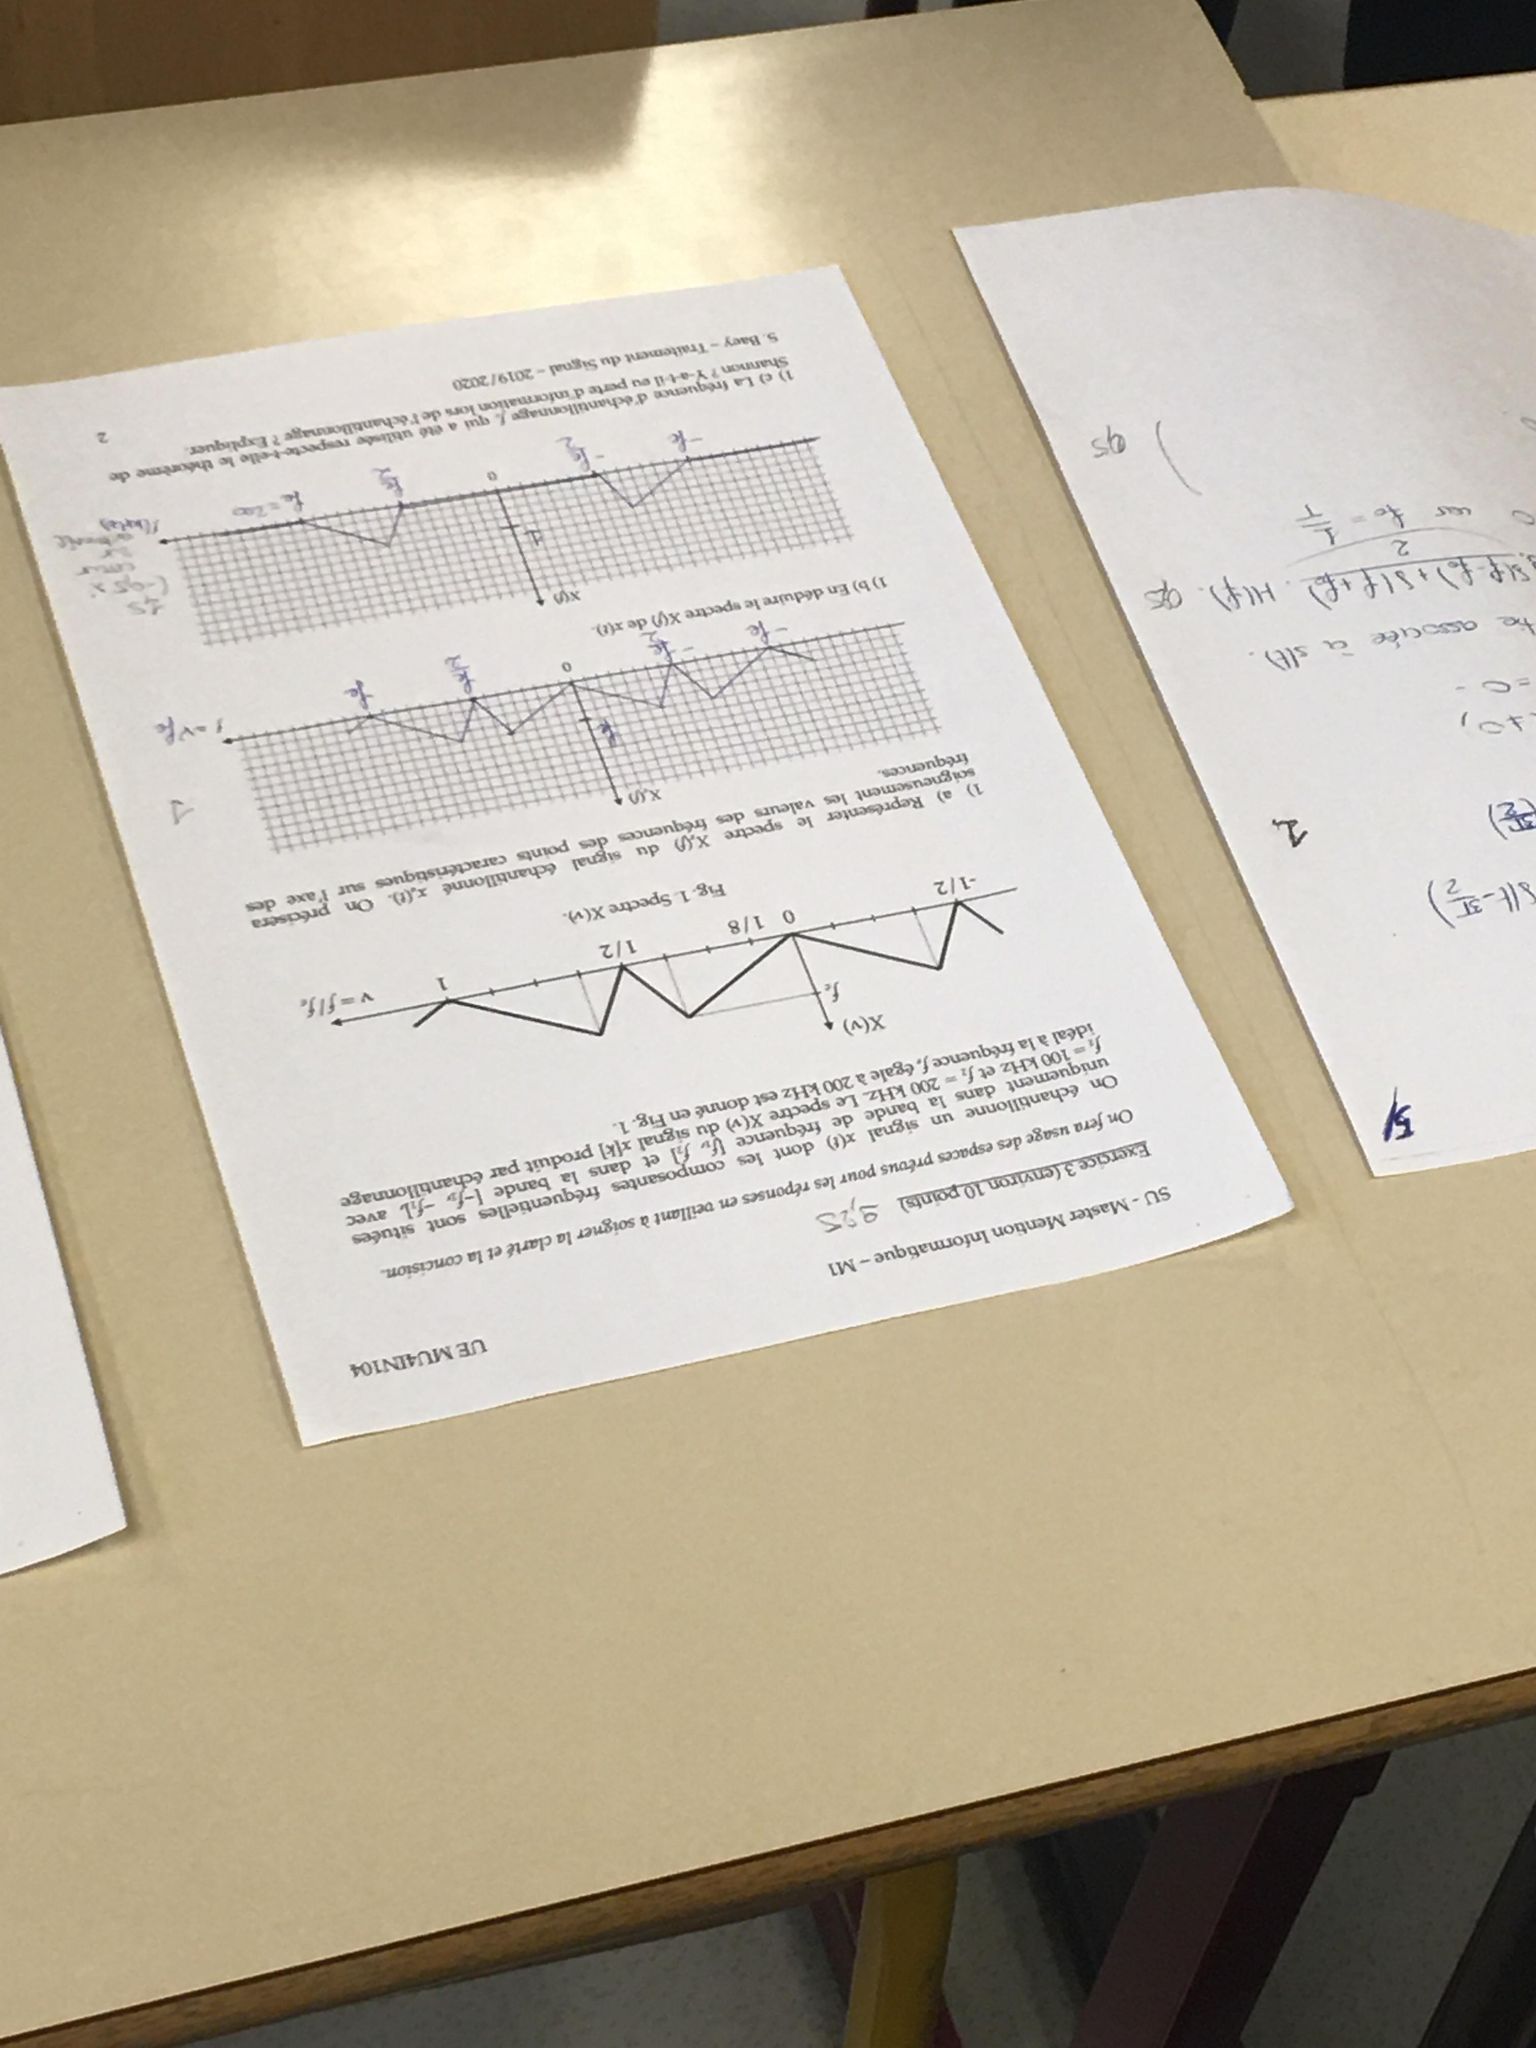 5/
δ(t-3T/2)
(3T/2)
1
≠0,
=0
associée à s(t).
δ(f-f₀)+δ(f+f₀) . H(f). 0,5
2
car f₀ = 1/T
) 0,5
UE MU4IN104
SU - Master Mention Informatique – M1
Exercice 3 (environ 10 points) 9,25
On fera usage des espaces prévus pour les réponses en veillant à soigner la clarté et la concision.
On échantillonne un signal x(t) dont les composantes fréquentielles sont situées
uniquement dans la bande de fréquence [f₁, f₂] et dans la bande [-f₂, -f₁], avec
f₁ = 100 kHz et f₂ = 200 kHz. Le spectre X(ν) du signal x[k] produit par échantillonnage
idéal à la fréquence fₑ égale à 200 kHz est donné en Fig. 1.
X(ν)
fₑ
ν = f/fₑ
-1/2 0 1/8 1/2 1
Fig. 1. Spectre X(ν).
1) a) Représenter le spectre Xₑ(f) du signal échantillonné xₑ(t). On précisera
soigneusement les valeurs des fréquences des points caractéristiques sur l'axe des
fréquences.
Xₑ(f)
1
fe
f = ν fe
-fe -fe/2 0 fe/2 fe
1) b) En déduire le spectre X(f) de x(t).
X(f)
1,5
(-0,5 x
erreur
sur
1
f(kHz)
-fe -fe/2 0 fe/2 fe = 200
1) c) La fréquence d'échantillonnage fₑ qui a été utilisée respecte-t-elle le théorème de
Shannon ? Y-a-t-il eu perte d'information lors de l'échantillonnage ? Expliquer.
2
S. Baey – Traitement du Signal – 2019/2020